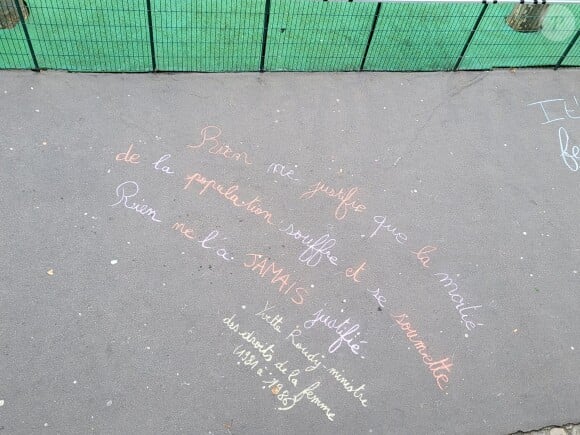 Rien ne justifie que la moitié
de la population souffre et se soumette.
Rien ne l'a JAMAIS justifié.
Yvette Roudy, ministre
des droits de la femme
(1981 à 1986)